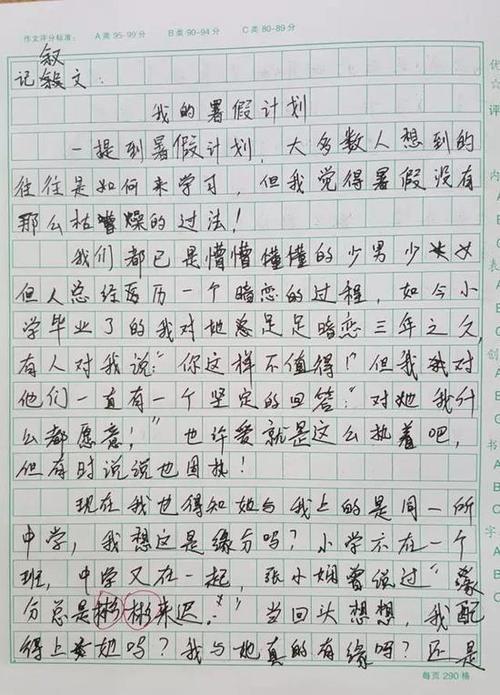 作文评分标准: A类 95-99分 B类 90-94分 C类 80-89分
叙
记文:
我的暑假计划
一提到暑假计划,大多数人想到的
往往是如何来学习,但我觉得暑假没有
那么枯燥的过法!
我们都已是懵懵懂懂的少男少女
但人总经历一个暗恋的过程,如今小
学毕业了的我对她足足暗恋三年之久,
有人对我说:“你这样不值得!”但我对
他们一直有一个坚定的回答:“对她我什
么都愿意!”也许爱就是这么执着吧,
但有时说说也固执!
现在我也得知她与我上的是同一所
中学,我想这是缘分吗?小学不在一个
班,中学又在一起,张小娴曾说过“缘
分总是彬彬来迟。”当回头想想,我配
得上她吗?我与她真的有缘吗?还是
每页290格
优
☆
评
内
A
B
C
表
A
B
C
创
A
B
书
A
B
字